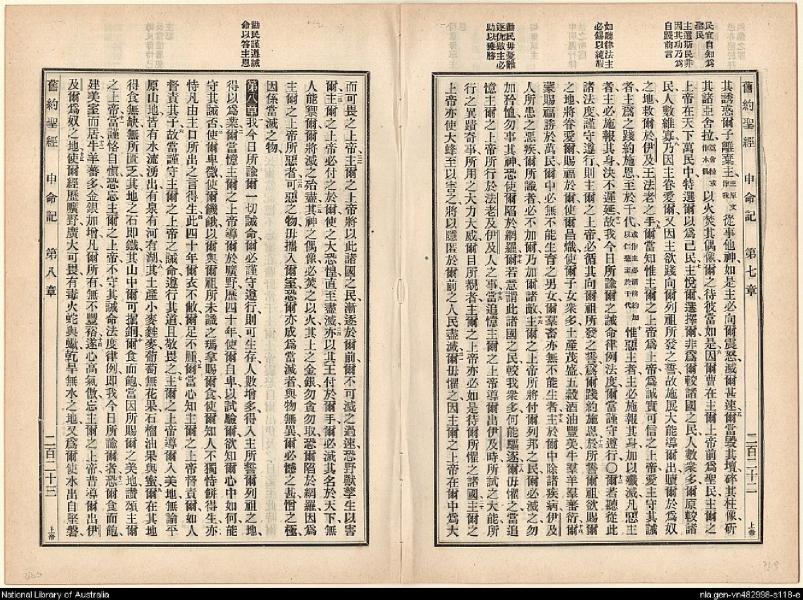 民宜自知為
聖民
主選斯民非
因其功乃為
自踐前言
如聽律法主
必錫以純嘏
勸民毋憂難
逐仇敵主必
助以獲勝
舊約聖經 申命記 第七章 二百二十二 上帝
其誘惑爾子離棄主 從事他神如是主必向爾震怒滅爾甚速爾當毀其壇碎其柱像斫
其諸亞舍拉 以火焚其偶像爾之待彼當如是因爾曹在主爾上帝前為聖民主爾之
上帝在天下萬民中特選爾以為己民主悅爾選擇爾非為爾較諸國之民人數衆多爾原較諸
民人數維寡乃因主眷愛爾又因主欲踐向爾列祖所發之誓故施展大能導爾出贖爾於為奴
之地救爾於伊及王法老之手爾當知惟主爾之上帝為上帝為誠實可信之上帝愛主守其誡
者主為之踐約施恩至於千代 惟惡主者主必施報其身加以殲滅凡惡主
者主必施報其身決不遲延故我今日所諭爾之誡命律例法度爾當謹守遵行〇爾若聽從此
諸法度謹守遵行則主爾之上帝必循其向爾祖所發之誓為爾踐約施恩於所誓爾祖欲賜爾
之地將眷愛爾賜福於爾使爾昌熾使爾子女衆多土產茂盛五穀酒油豐盈牛羣羊羣蕃衍爾
蒙賜福勝於萬民爾中必無不能生育之男女爾羣畜亦無不能生者主於爾中除諸疾病伊及
人所患之惡疾爾所識者必不加爾乃加爾諸敵主爾之上帝所將付爾列邦之民爾必滅之勿
加矜恤勿事其神恐使爾陷於網羅爾若意謂此諸國之民較我衆多何能驅逐爾毋懼之當追
憶主爾之上帝所行於法老及伊及人之事當追憶主爾之上帝導爾出伊及時所試之大能所
行之異蹟奇事所用之大力大威爾目所覩者主爾之上帝亦必如是待爾所懼之諸國主爾之
上帝亦使大蜂至以害之將以隱匿於爾前之人民盡滅爾毋懼之因主爾之上帝在爾中為大
勸民謹遵誡
命以答主恩
而可畏之上帝主爾之上帝將以此諸國之民漸逐於爾前爾不可滅之過速恐野獸孳生以害
爾主爾之上帝必付之於爾使之大恐惶直至盡滅亦以其王付於爾手爾必滅其名於天下無
人能禦爾爾將滅之殆盡其神之偶像必焚之以火其上之金銀勿貪勿取恐爾陷於網羅因為
主爾之上帝所惡者可惡之物毋攜入爾室恐爾亦成為當滅者與物無異爾必憾之甚惜之極
因係當滅之物
第八章 我今日所諭爾一切誡命爾必謹守遵行則可生存人數增多得入主所誓爾列祖之地
得以為業爾當憶主爾之上帝導爾於曠野歷四十年使爾自卑以試驗爾欲知爾心中如何能
守其誡否使爾卑微使爾饑餓以爾與爾祖所未識之瑪拿賜爾食使爾知人不獨恃餅得生亦
恃凡由主口所出之言得生此四十年爾衣不敝爾足不腫爾當心知主爾之上帝督責爾如人
督責其子故當謹守主爾之上帝之誡命遵行其道且敬畏之主爾之上帝導爾入美地無論平
原山地皆有水流湧出有泉有河有湖其土產小麥麰麥葡萄無花果石榴油果與蜜爾在其地
得食無缺無所匱乏其地之石卽鐵其山中爾可掘銅爾食而飽當因所賜爾之美地讚頌主爾
之上帝當謹恪自慎恐忘主爾之上帝不守其誡命法度律例卽我今日所諭爾者恐爾食而飽
建美室而居牛羊蕃多金銀加增凡爾所有無不豐裕遂心高氣傲忘主爾之上帝昔導爾出伊
及爾為奴之地使爾經歷曠野廣大可畏有毒火蛇與蠍乾旱無水之地又為爾使水出自堅磐
舊約聖經 申命記 第八章 二百二十三 上帝
National Library of Australia
nla.gen-vn482998-s118-e